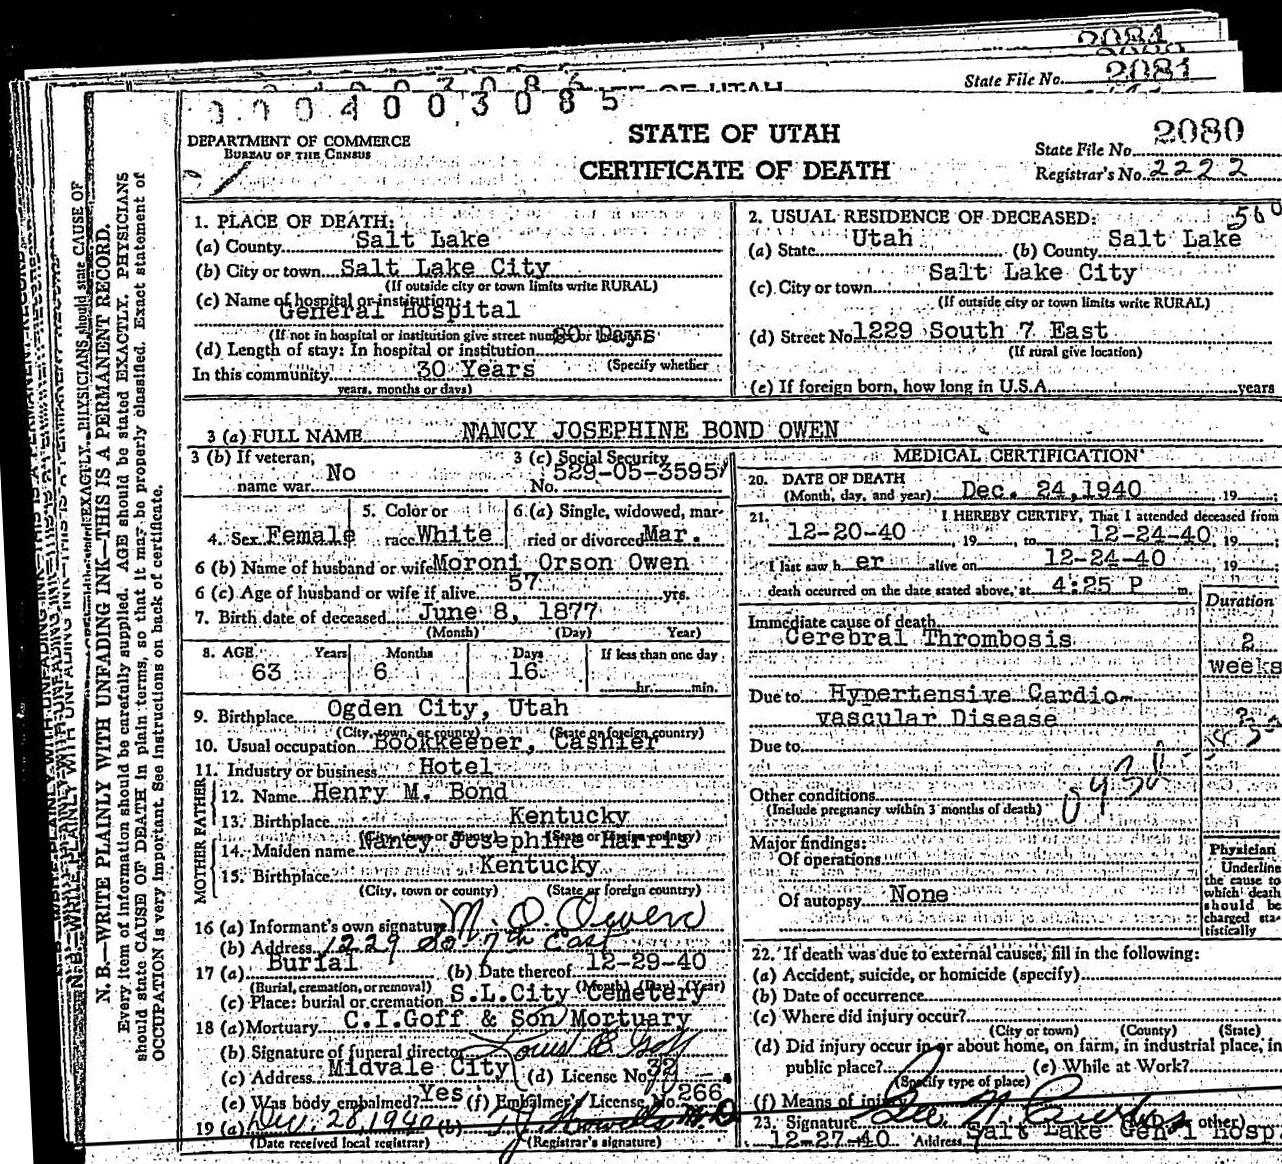 2081
State File No. 2081
0004003085
DEPARTMENT OF COMMERCE
BUREAU OF THE CENSUS
STATE OF UTAH
CERTIFICATE OF DEATH
State File No. 2080
Registrar's No. 2222
1. PLACE OF DEATH:
(a) County Salt Lake
(b) City or town Salt Lake City
(If outside city or town limits write RURAL)
(c) Name of hospital or institution:
General Hospital
(If not in hospital or institution give street number or location)
(d) Length of stay: In hospital or institution
In this community 30 Years (Specify whether
years, months or days)
2. USUAL RESIDENCE OF DECEASED:
(a) State Utah (b) County Salt Lake
(c) City or town Salt Lake City
(If outside city or town limits write RURAL)
(d) Street No 1229 South 7 East
(If rural give location)
(e) If foreign born, how long in U.S.A. years
3 (a) FULL NAME NANCY JOSEPHINE BOND OWEN
3 (b) If veteran, name war No
3 (c) Social Security No. 529-05-3595
4. Sex Female
5. Color or race White
6 (a) Single, widowed, married or divorced Mar.
6 (b) Name of husband or wife Moroni Orson Owen
6 (c) Age of husband or wife if alive 57 yrs.
7. Birth date of deceased June 8, 1877
(Month) (Day) Year)
8. AGE Years Months Days If less than one day
63 6 16 hr. min.
9. Birthplace Ogden City, Utah
(City, town, or county) (State or foreign country)
10. Usual occupation Bookkeeper, Cashier
11. Industry or business Hotel
FATHER
12. Name Henry M. Bond
13. Birthplace Kentucky
(City, town or county) (State or foreign country)
MOTHER
14. Maiden name Nancy Josephine Harris
15. Birthplace Kentucky
(City, town or county) (State or foreign country)
16 (a) Informant's own signature M. O. Owen
(b) Address 1229 So 7th East
17 (a) Burial (b) Date thereof 12-29-40
(Burial, cremation, or removal) (Month) (Day) (Year)
(c) Place: burial or cremation S.L.City Cemetery
18 (a) Mortuary C.I.Goff & Son Mortuary
(b) Signature of funeral director
(c) Address Midvale City (d) License No 32
(e) Was body embalmed? Yes (f) Embalmer's License No. 266
19 (a) Dec. 28, 1940 (b)
(Date received local registrar) (Registrar's signature)
MEDICAL CERTIFICATION
20. DATE OF DEATH
(Month, day, and year) Dec. 24,1940, 19
21. I HEREBY CERTIFY, That I attended deceased from
12-20-40, 19 to 12-24-40, 19;
I last saw h er alive on 12-24-40, 19;
death occurred on the date stated above, at 4:25 P m.
Duration
Immediate cause of death
Cerebral Thrombosis 2
weeks
Due to Hypertensive Cardio-
vascular Disease ?
Due to
Other conditions
(Include pregnancy within 3 months of death)
Major findings:
Of operations
Of autopsy None
Physician
Underline
the cause to
which death
should be
charged sta-
tistically
22. If death was due to external causes, fill in the following:
(a) Accident, suicide, or homicide (specify)
(b) Date of occurrence
(c) Where did injury occur?
(City or town) (County) (State)
(d) Did injury occur in or about home, on farm, in industrial place, in
public place? (e) While at Work?
(Specify type of place)
(f) Means of injury
23. Signature (M.D. or other)
12-27-40 Address Salt Lake Gen'l Hosp.
N. B.—WRITE PLAINLY WITH UNFADING INK—THIS IS A PERMANENT RECORD.
Every item of information should be carefully supplied. AGE should be stated EXACTLY. PHYSICIANS
should state CAUSE OF DEATH in plain terms, so that it may be properly classified. Exact statement of
OCCUPATION is very important. See instructions on back of certificate.